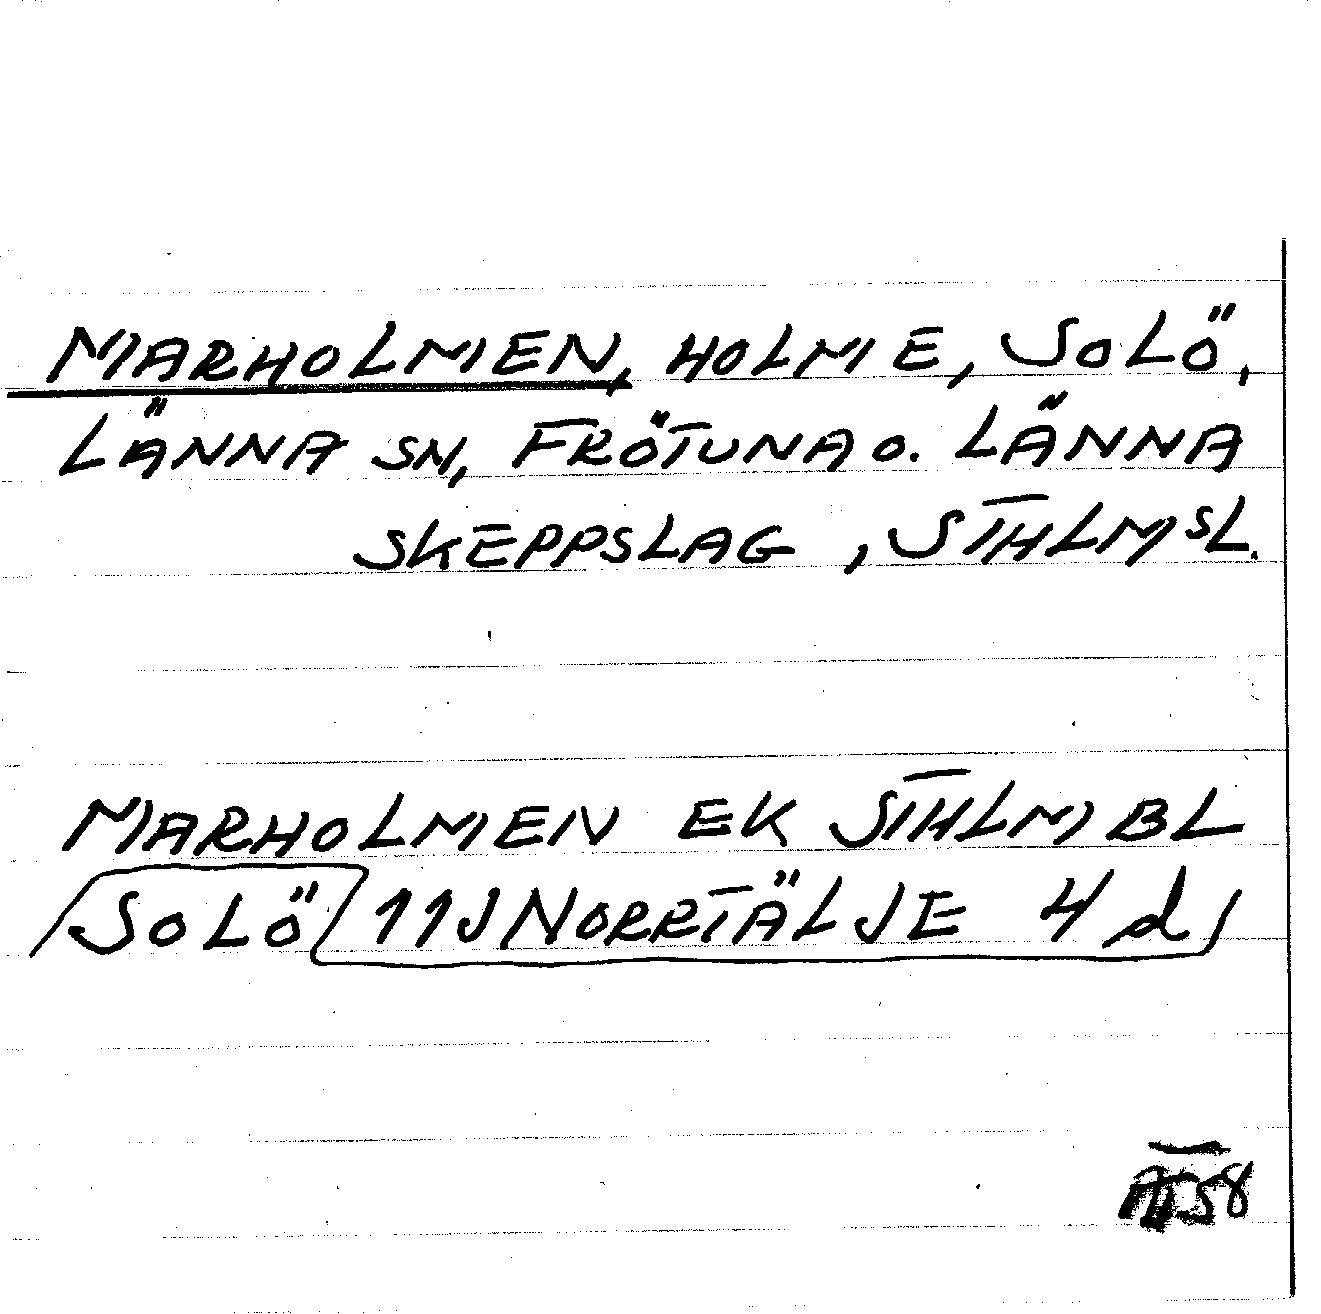 MARHOLMEN, HOLME, SOLÖ,
LÄNNA SN, FRÖTUNA O. LÄNNA
SKEPPSLAG, STHLMSL.
MARHOLMEN EK STHLM BL
SOLÖ 11J NORRTÄLJE 4d
58